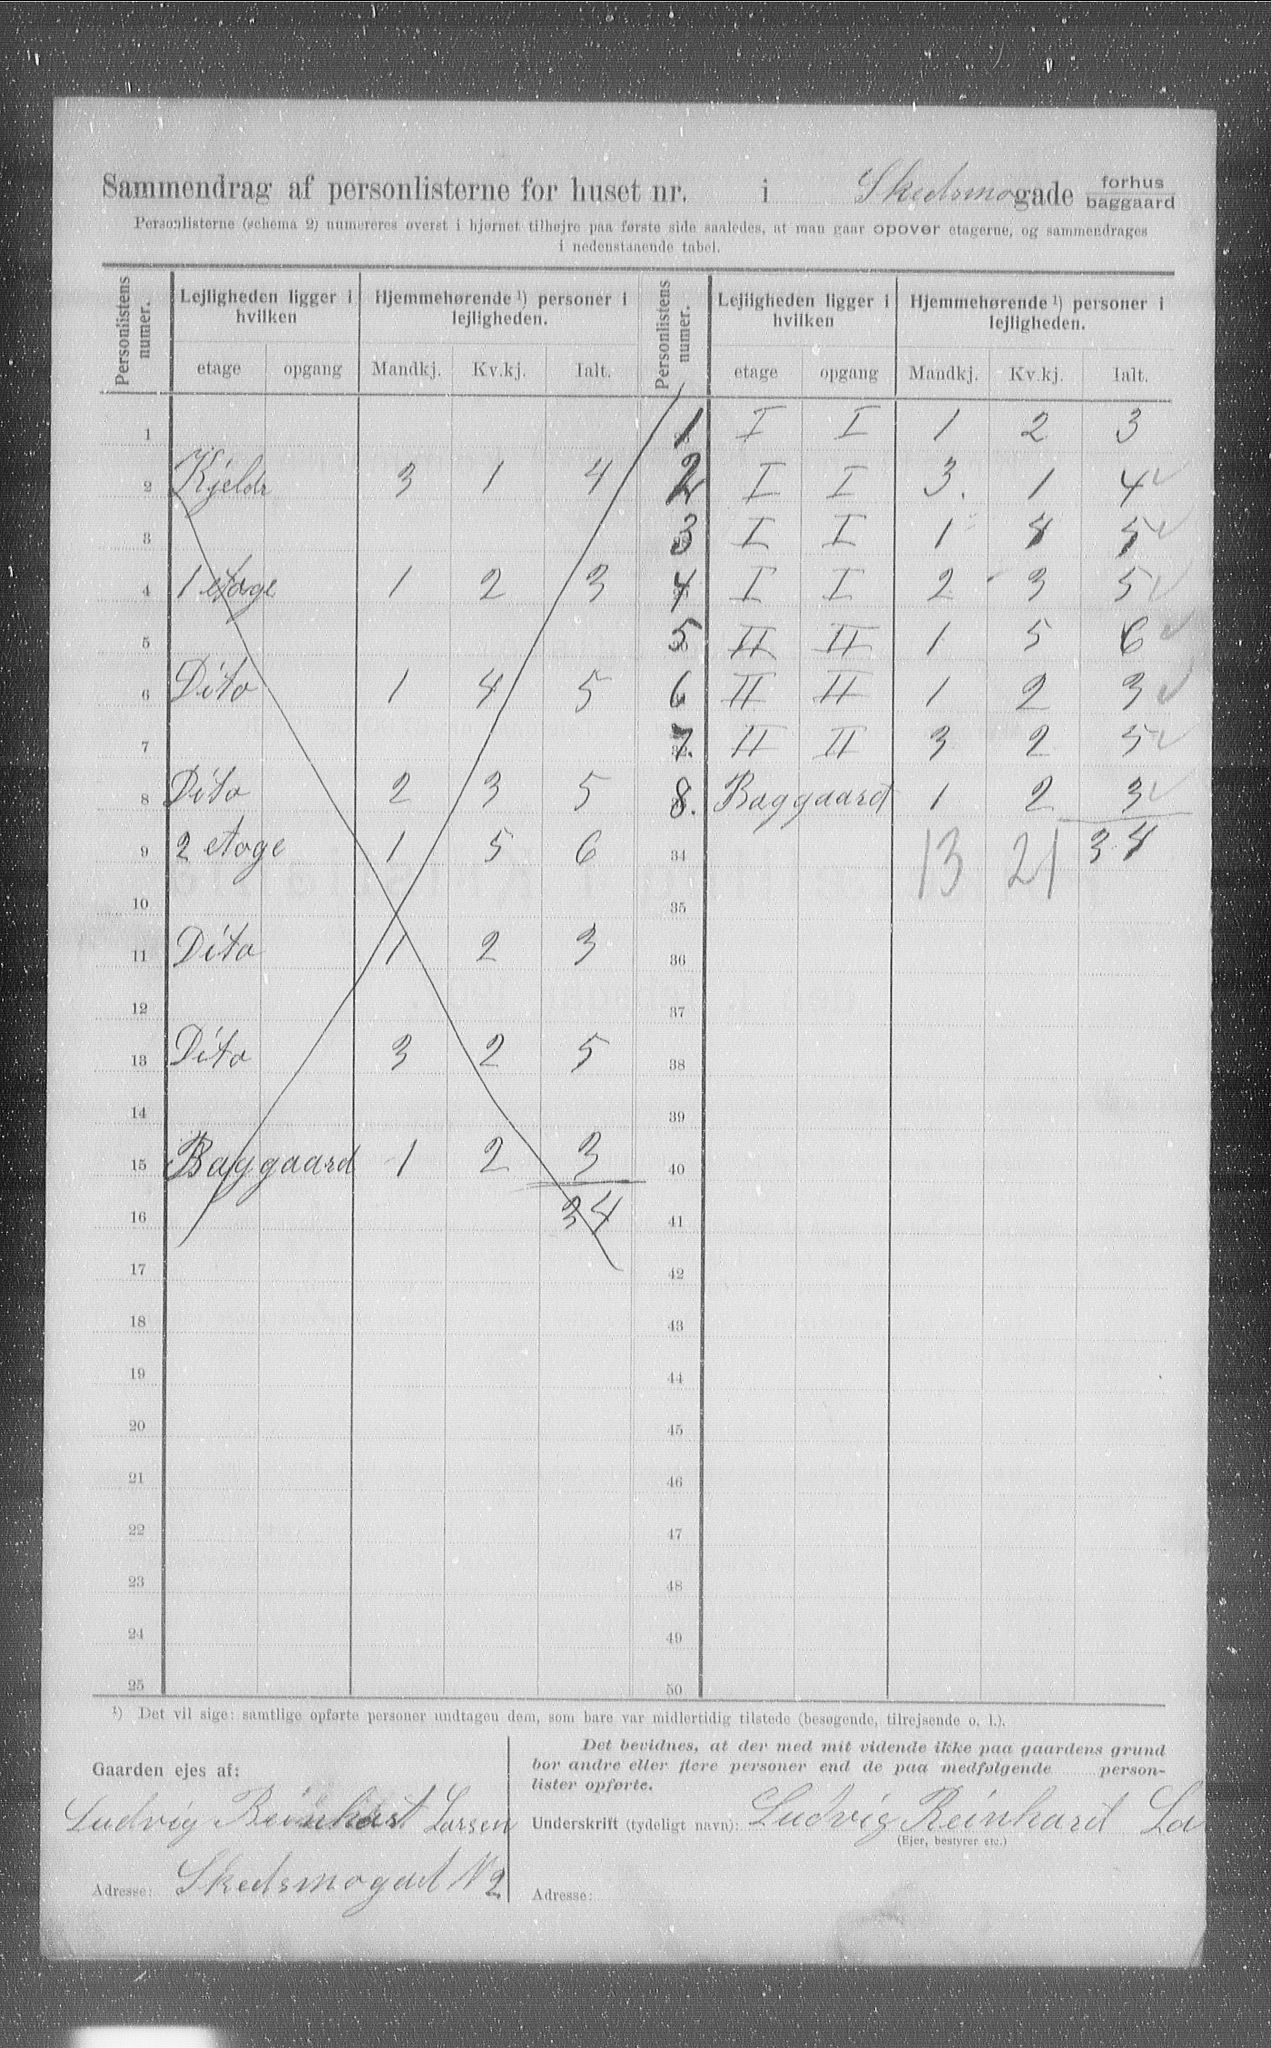 Sammendrag af personlisterne for huset nr. i Skedsmogade forhus baggaard
Personlisterne (schema 2) numereres øverst i hjørnet tilhøjre paa første side saaledes, at man gaar opover etagerne, og sammendrages
i nedenstaaende tabel.
Personlistens numer. Lejligheden ligger i hvilken Hjemmehørende ¹) personer i lejligheden. Personlistens numer. Lejligheden ligger i hvilken Hjemmehørende ¹) personer i lejligheden.
etage opgang Mandkj. Kv.kj. Ialt. etage opgang Mandkj. Kv.kj. Ialt.
1 1 I I 1 2 3
2 Kjelder 3 1 4 2 I I 3. 1 4
3 3 I I 1 4 5
4 1 etage 1 2 3 4 I I 2 3 5
5 5 II II 1 5 6
6 Dito 1 4 5 6 II II 1 2 3
7 7. II II 3 2 5
8 Dito 2 3 5 8. Baggaard 1 2 3
9 2 etage 1 5 6 34 13 21 34
10 35
11 Dito 1 2 3 36
12 37
13 Dito 3 2 5 38
14 39
15 Baggaard 1 2 3 40
16 34 41
17 42
18 43
19 44
20 45
21 46
22 47
23 48
24 49
25 50
¹) Det vil sige: samtlige opførte personer undtagen dem, som bare var midlertidig tilstede (besøgende, tilrejsende o. l.).
Gaarden ejes af:
Ludvig Reinhart Larsen
Adresse: Skedsmogad N 2
Det bevidnes, at der med mit vidende ikke paa gaardens grund
bor andre eller flere personer end de paa medfølgende person-
lister opførte.
Underskrift (tydeligt navn): Ludvig Reinhard La
(Ejer, bestyrer etc.)
Adresse: